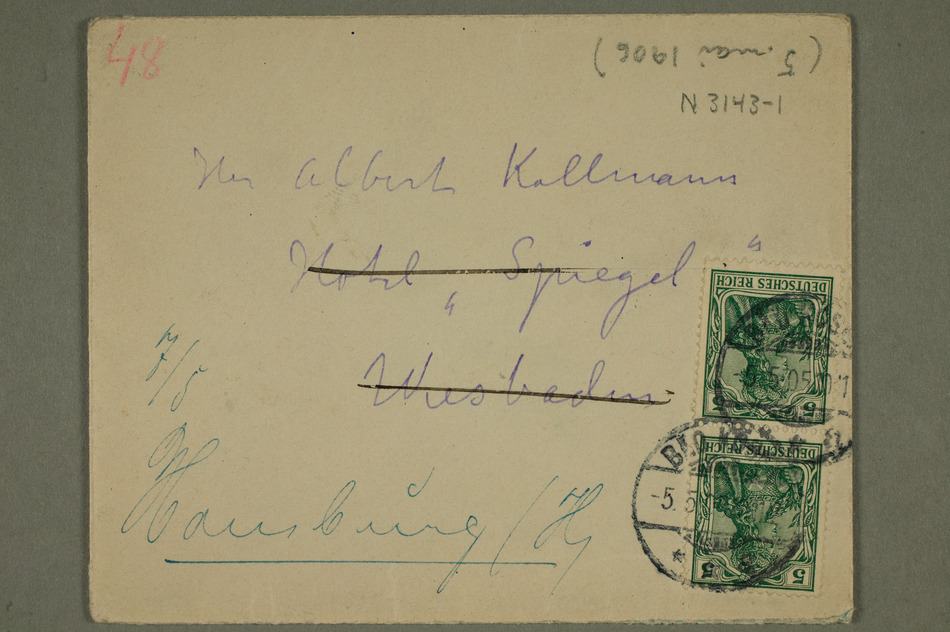 48
(5. mai 1906)
N 3143-1
Herr Albert Kollmann
Hotel „Spiegel“
Wiesbaden
7/5
Homburg (H)
DEUTSCHES REICH
5 5
DEUTSCHES REICH
5 5
BAD KÖ
-5.